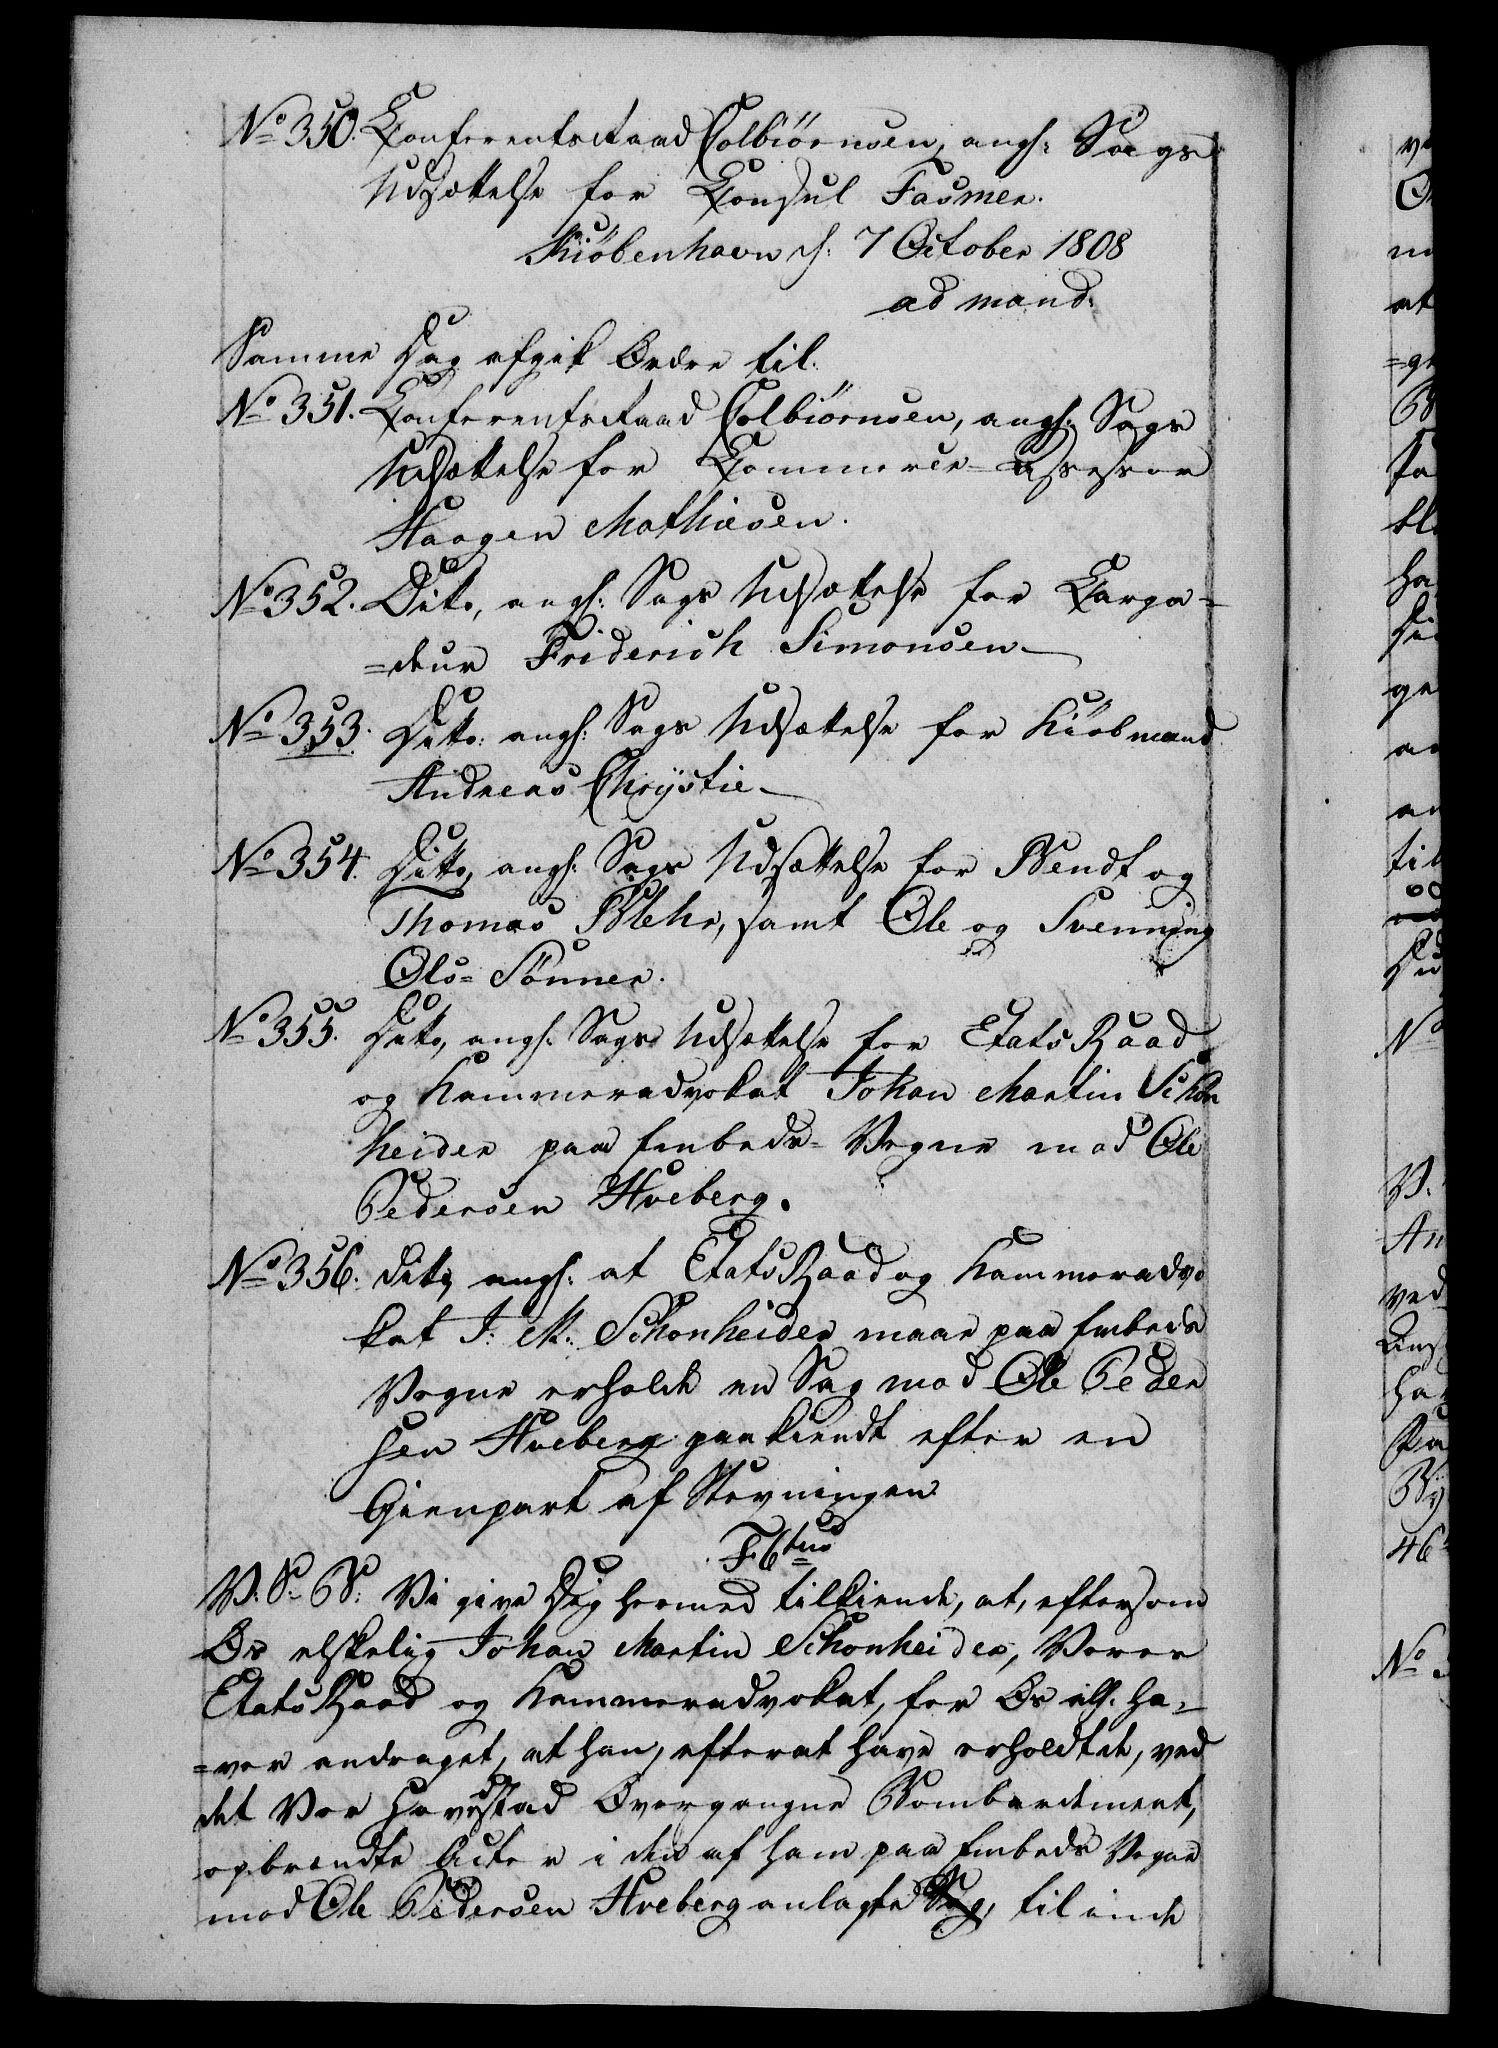 No 350. Konferentsraad Colbiörnsen, angl: Sags
Udsættelse for Konsul Fasmer.
Kiöbenhavn d: 7 October 1808
ad mand:
Samme Dag afgik Ordre til:
No 351. Konferentsraad Colbiörnsen, angl: Sags
Udsættelse for Kommerce-Assessor
Haagen Mathiesen.
No 352. Dito, angl: Sags Udsættelse for Karga=
=deur Friderich Simonsen
No 353. Ditto: angl: Sags Udsættelse for Kiöbmand
Andreas Chrÿstie
No 354. Ditto, angl: Sags Udsættelse for Bendt og
Thomas Blehr, samt Ole og Svenning
Ols=Sönner.
No 355. Dito, angl: Sags Udsættelse for Etats Raad
og Kammeradvokat Johan Martin Schön
heider paa Embeds-Vegne mod Ole
Pedersen Hveberg.
No 356. Dito, angl: at Etats Raad og Kammeradvo
kat J: M: Schönheider maae paa Embeds
Vegne erholde en Sag mod Ole Peder
sen Hveberg paakiendt efter en
Gienpart af Stevningen
F6tus
V. S. B: Vi give Dig hermed tilkiende, at, eftersom
Os elskelig Johan Martin Schönheider, Vores
Etats Raad og Kammeradvokat, for Os all. ha=
=ver andraget, at han, efterat have erholdte, ved
det Vor Hovedstad Overgangne Bombardement,
opbrendte Acter i den af ham paa Embeds Vegne
mod Ole Pedersen Hveberg anlagte Sag, til ende